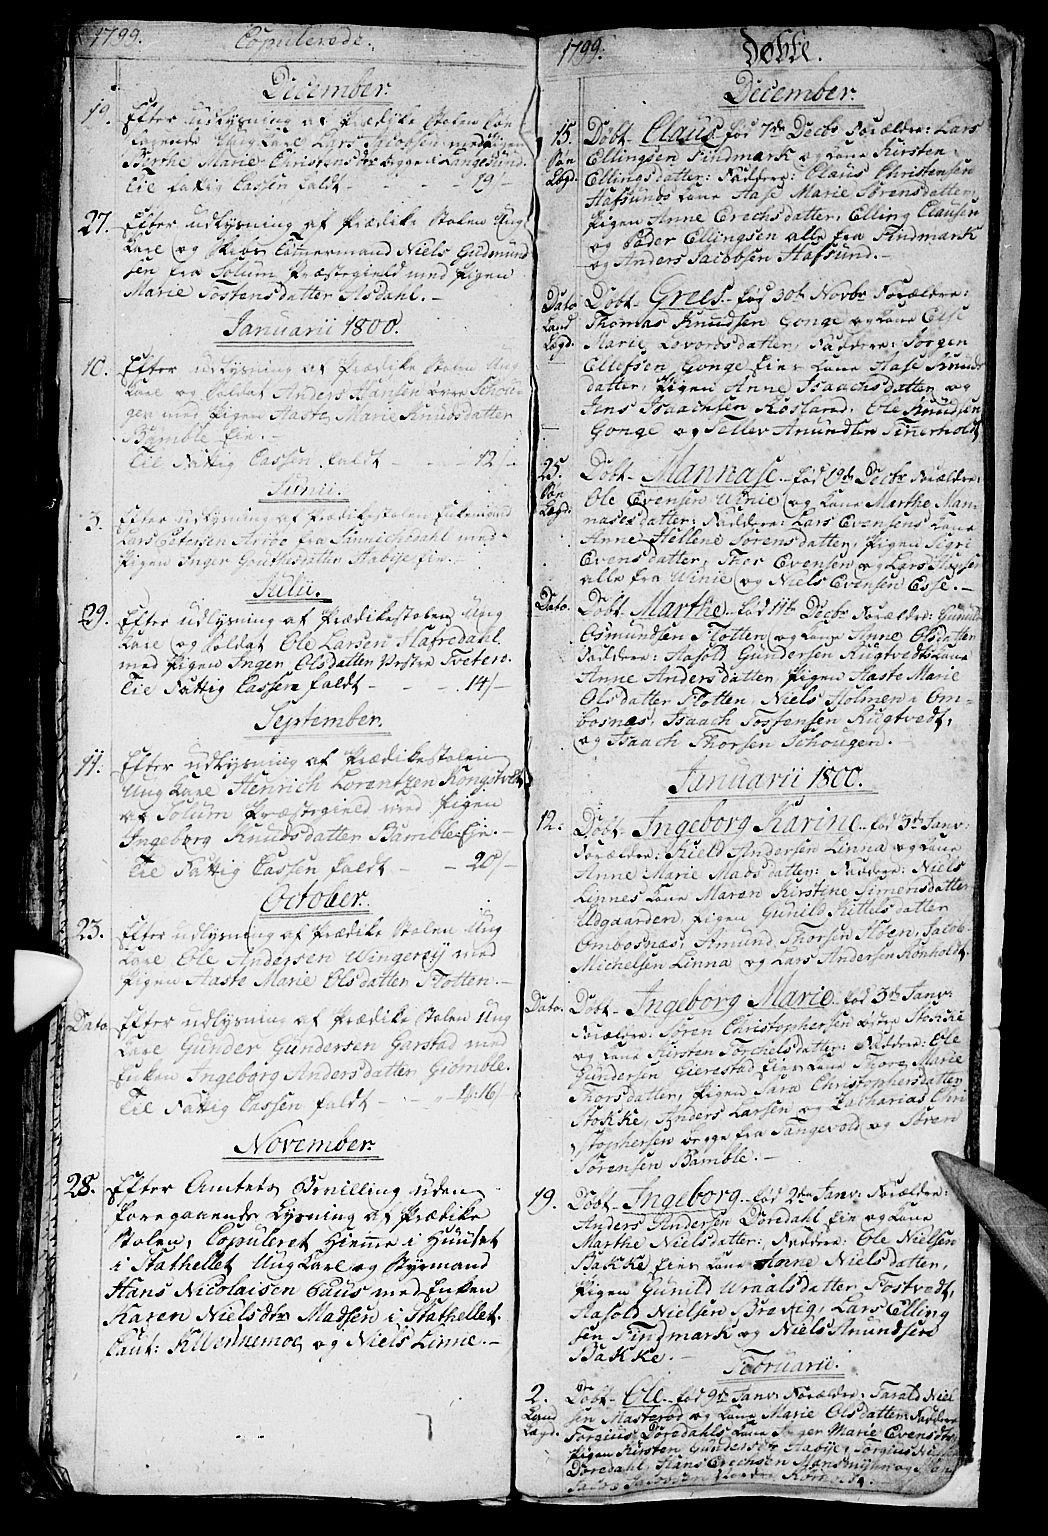 1799. Copulerede.
December.
19. Efter udlysning af Prædike Stolen Søn
Lars Jacobsen med Pigen
Berthe Marie Christensdr begge i Langesund.
Til fattig Cassen faldt - 19/-
27. Efter udlysning af Prædike Stolen Ung
Karl og Tømermand Niels Gudmund
sen fra Solum Præstegield med Pigen
Marie Tostensdatter Asdahl. -
Januarii 1800.
10. Efter udlysning af Prædike Stolen Ung
Karl og Soldat Anders Hansen
gen med Pigen Aaste Marie Knudsdatter
Bamble Eie. -
Til Fattig Cassen faldt - 12/-
Junii.
3. Efter udlysning af Prædikestolen Enkemand
Lars Petersen Aröe fra Sinnichdahl med
Pigen Inger Gouthesdatter Aabÿe Eie. -
Julii.
29. Efter udlysning af Prædikestolen Ung
Karl og Soldat Ole Larsen Hafredahl
med Pigen Inger Olsdatter Vestre Tveten.
Til Fattig Cassen faldt - 14/-
September.
11. Efter udlysning af Prædikestolen
Ung Karl Henrich Lorentzen Kongstvelt
af Solum Præstegield med Pigen
Ingeborg Knudsdatter Bamble Eje. -
Til Fattig Cassen faldt - 20/-
October.
23. Efter udlysning af Prædike Stolen Ung
Karl Ole Andersen Wingereÿ med
Pigen Aaste Marie Olsdatter Flotten. -
Dato Efter udlysning af Prædike Stolen Ung
Karl Gunder Gundersen Garstad med
Enken Ingeborg Andersdatter Giømble.
Til Fattig Cassen faldt - 16/
November.
28. Efter Amtets Bevilling uden
foregaaende Lysning af Prædike
Stolen, Copuleret Hiemme i Huuset
i Stathellet Ung Karl og Styrmand
Hans Nicolaisen Claus med Enken
Karen Nielsdr Madsen i Stathellet.
Caut: K. Wennemoe og Niels Linne. -
1799. Døbte.
December.
15. Døbt Claus fød 7de Decbr Forældre: Lars
Søe Ellingsen Findmark og Kone Kirsten
Lægd. Ellingsdatter: Faddere: Claus Christensen
Hafsunds Kone Aase Marie Sørensdatter,
Pigen Anne Erechsdatter, Elling Clausen
og Peder Ellingsen alle fra Findmark
og Anders Jacobsen Hafsund. -
Dato Døbt Grees fød 30te Novbr Forældre:
Land Thomas Knudsen Gonge og Kone Else
Lægd. Marie Levordsdatter, Faddere: Jørgen
Ellefsen Gonge Eie Kone Aase Knuds
datter, Pigen Anne Isaachsdatter og
Jens Isaachsen Rosland, Ole Knudsen
Gonge og Tellev Amundsen Tinerholt
25. Døbt Mannase fød 19de Decbr Forældre:
Søe Ole Evensen Winie og Kone Marthe Man
Lægd: nasesdatter: Faddere: Lars Evensens Kone
Anne Hellene Sørensdatter, Pigen Sigri
Evensdatter, Thor Evensen og Lars Hansen
alle fra Winie og Niels Evensen Esse. -
Dato. Døbt Marthe fød 11te Decbr Forældre: Gunild
Osmundsen Flotten og Kone Anne Olsdatter
Faddere: Aasold Gundersen Rugtvedts Kone
Anne Andersdatter Pigen Aaste Marie
Olsdatter Flotten, Niels Holmen i Om-
bosnæs, Isaach Tostensen Rugtvedt,
og Isaach Thorsen Schougen.
Januarii 1800.
12. Døbt Ingeborg Karine fød 3de Janv:
Forældre: Kield Andersen Linna og Kone
Anne Marie Madsdatter: Faddere: Niels
Linnes Kone Maren Kirstine Simensdatter
Udgaarden, Pigen Gunild Kittelsdatter
Ombosnæs, Amund Thorsen Høen, Jacob
Michelsen Linna og Lars Andersen Rønholdt.
Dato. Døbt Ingeborg Marie fød 3de Janv:
Forældre Søren Christophersen østre Stokke
og Kone Kirsten Torchelsdatter: Faddere: Ole
Gundersen Gierestad Eies Kone Thore Marie
Thorsdatter, Pigen Sara Christophersdatter
Stokke, Anders Larsen og Zacharias Chri
stophersen begge fra Tangevold og Søren
Sörensen Bamble. -
19. Døbt Ingeborg fød 2de Janv: Forældre:
Anders Andersen Dørdahl Eie og Kone
Marthe Nielsdatter: Faddere: Ole Nielsen
Bakke Eies Kone Anne Nielsdatter,
Pigen Gunild Uraalsdatter Tostvedt,
Aasold Nielsen Brevig, Lars Elling
sen Findmark og Niels Amundsen
Bakke. -
Februarii.
2. Døbt Ole fød 9de Janv: Forældre: Tarald Niel
Land sen Masterød og Kone Marie Olsdatter, Faddere
Lægd. Torgius Dørdahls Kone Inger Marie Evensdtr,
Pigen Kirsten Gundersdtr Aabÿe, Torgius Nielsen
Dørdahl, Hans Erechsen Mønsmyhr og
Jacob Jacobsen